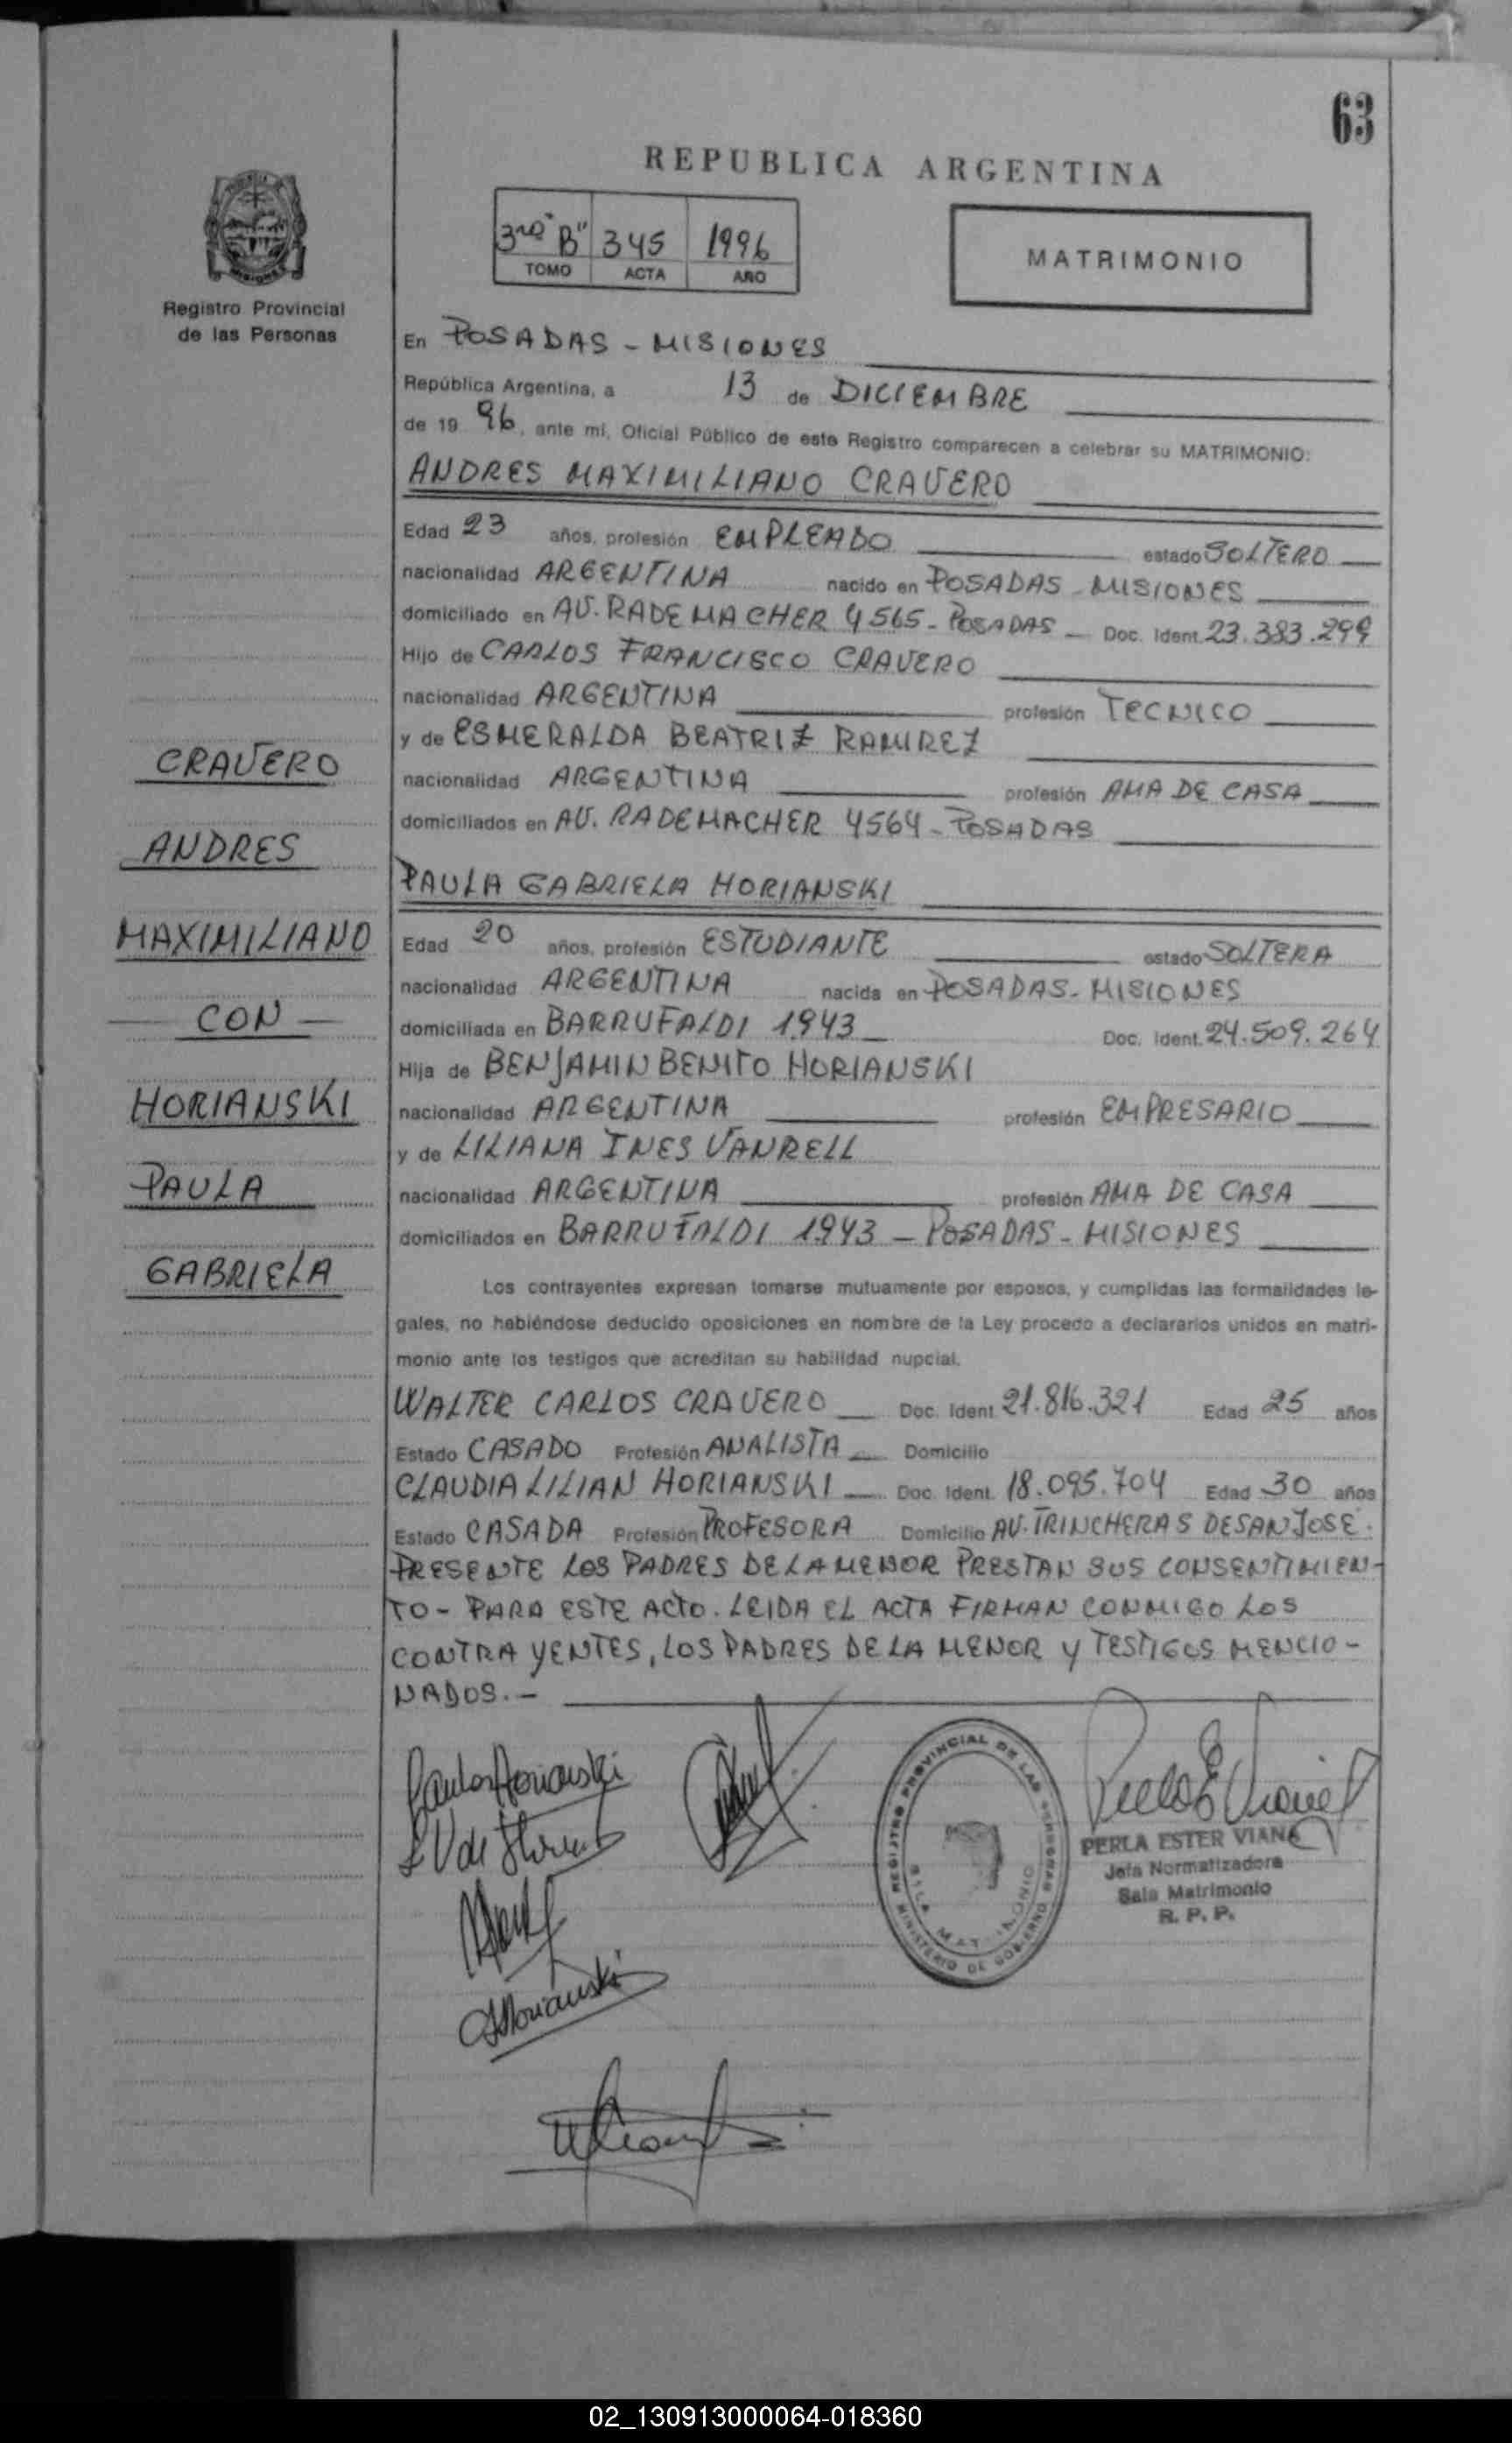 63
REPUBLICA ARGENTINA
3ro "B" 345 1996
TOMO ACTA AÑO
MATRIMONIO
Registro Provincial
de las Personas
En POSADAS - MISIONES
República Argentina, a 13 de DICIEMBRE
de 19 96, ante mí, Oficial Público de este Registro comparecen a celebrar su MATRIMONIO:
ANDRES MAXIMILIANO CRAVERO
Edad 23 años, profesión EMPLEADO estado SOLTERO
nacionalidad ARGENTINA nacido en POSADAS - MISIONES
domiciliado en AV. RADEMACHER 4565 - POSADAS - Doc. Ident. 23.383.299
Hijo de CARLOS FRANCISCO CRAVERO
nacionalidad ARGENTINA profesión TECNICO
y de ESMERALDA BEATRIZ RAMIREZ
nacionalidad ARGENTINA profesión AMA DE CASA
domiciliados en AV. RADEMACHER 4564 - POSADAS
PAULA GABRIELA HORIANSKI
Edad 20 años, profesión ESTUDIANTE estado SOLTERA
nacionalidad ARGENTINA nacida en POSADAS - MISIONES
domiciliada en BARRUFALDI 1943 Doc. Ident. 24.509.264
Hija de BENJAMIN BENITO HORIANSKI
nacionalidad ARGENTINA profesión EMPRESARIO
y de LILIANA INES VANRELL
nacionalidad ARGENTINA profesión AMA DE CASA
domiciliados en BARRUFALDI 1943 - POSADAS - MISIONES
Los contrayentes expresan tomarse mutuamente por esposos, y cumplidas las formalidades le-
gales, no habiéndose deducido oposiciones en nombre de la Ley procedo a declararlos unidos en matri-
monio ante los testigos que acreditan su habilidad nupcial.
WALTER CARLOS CRAVERO Doc. Ident 21.816.321 Edad 25 años
Estado CASADO Profesión ANALISTA Domicilio
CLAUDIA LILIAN HORIANSKI Doc. Ident. 18.095.704 Edad 30 años
Estado CASADA Profesión PROFESORA Domicilio AV. TRINCHERAS DE SAN JOSE.
PRESENTE LOS PADRES DE LA MENOR PRESTAN SUS CONSENTIMIEN-
TO - PARA ESTE ACTO. LEIDA EL ACTA FIRMAN CONMIGO LOS
CONTRAYENTES, LOS PADRES DE LA MENOR Y TESTIGOS MENCIO-
NADOS.-
CRAVERO
ANDRES
MAXIMILIANO
- CON -
HORIANSKI
PAULA
GABRIELA
REGISTRO PROVINCIAL DE LAS PERSONAS
MINISTERIO DE GOBIERNO
PERLA ESTER VIANA
Jefa Normatizadora
Sala Matrimonio
R. P. P.
02_130913000064-018360